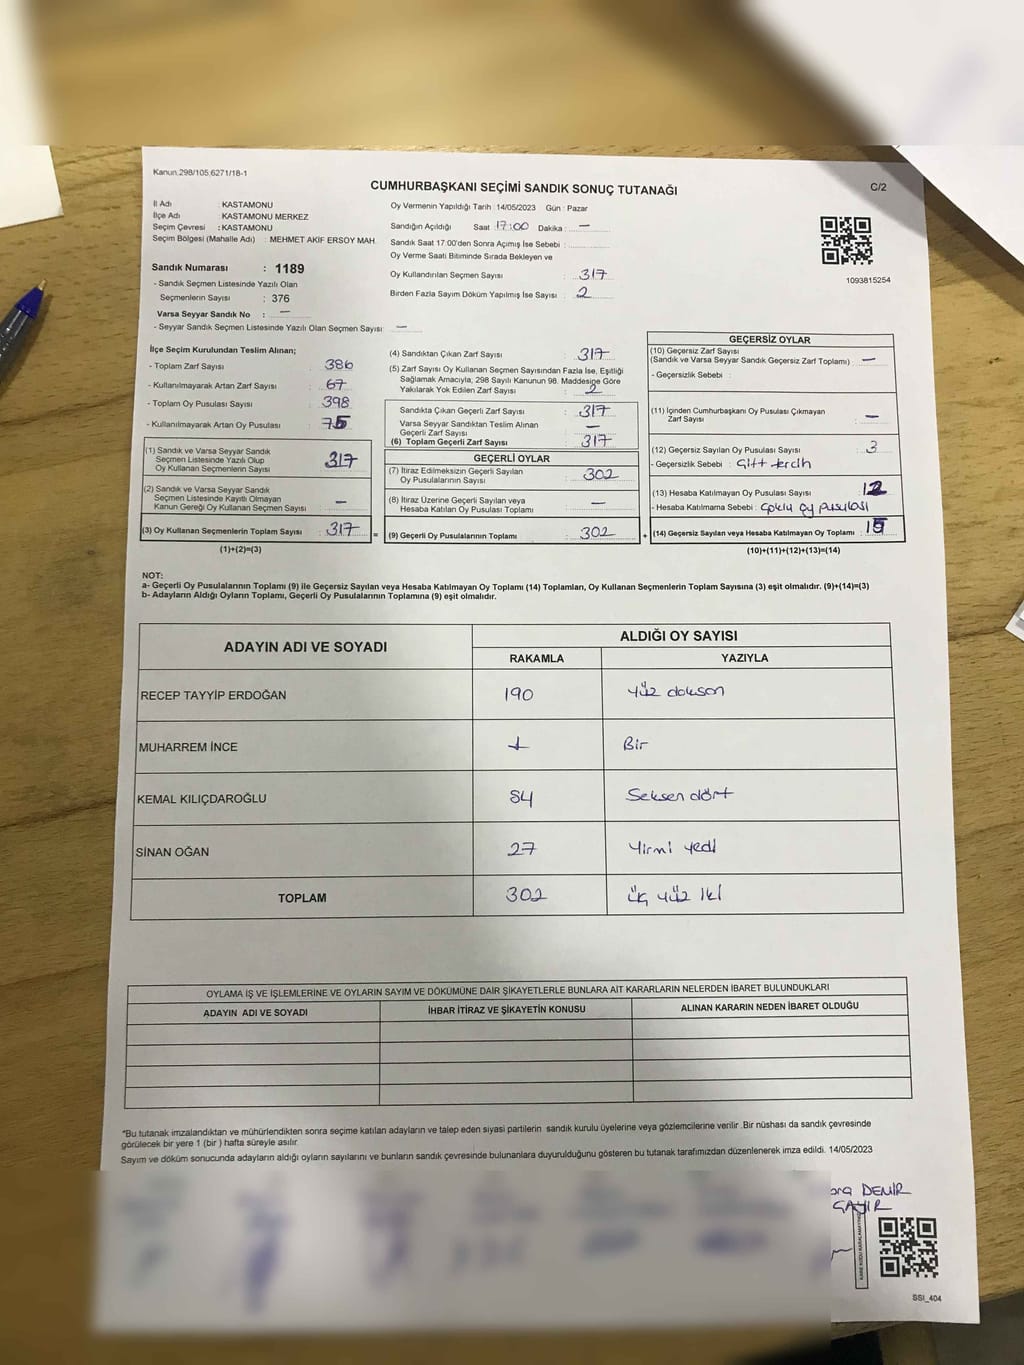 Kanun.298/105,6271/18-1
CUMHURBAŞKANI SEÇİMİ SANDIK SONUÇ TUTANAĞI
C/2
İl Adı : KASTAMONU
İlçe Adı : KASTAMONU MERKEZ
Seçim Çevresi : KASTAMONU
Seçim Bölgesi (Mahalle Adı) : MEHMET AKİF ERSOY MAH.
Sandık Numarası : 1189
- Sandık Seçmen Listesinde Yazılı Olan
Seçmenlerin Sayısı : 376
Varsa Seyyar Sandık No : —
- Seyyar Sandık Seçmen Listesinde Yazılı Olan Seçmen Sayısı: —
Oy Vermenin Yapıldığı Tarih : 14/05/2023 Gün : Pazar
Sandığın Açıldığı Saat : 17:00 Dakika : —
Sandık Saat 17:00'den Sonra Açımış İse Sebebi :
Oy Verme Saati Bitiminde Sırada Bekleyen ve
Oy Kullandırılan Seçmen Sayısı : 317
Birden Fazla Sayım Döküm Yapılmış İse Sayısı : 2
1093815254
İlçe Seçim Kurulundan Teslim Alınan;
- Toplam Zarf Sayısı : 386
- Kullanılmayarak Artan Zarf Sayısı : 67
- Toplam Oy Pusulası Sayısı : 398
- Kullanılmayarak Artan Oy Pusulası : 75
(1) Sandık ve Varsa Seyyar Sandık
Seçmen Listesinde Yazılı Olup
Oy Kullanan Seçmenlerin Sayısı : 317
(2) Sandık ve Varsa Seyyar Sandık
Seçmen Listesinde Kayıtlı Olmayan
Kanun Gereği Oy Kullanan Seçmen Sayısı : —
(3) Oy Kullanan Seçmenlerin Toplam Sayısı : 317
(1)+(2)=(3)
(4) Sandıktan Çıkan Zarf Sayısı : 317
(5) Zarf Sayısı Oy Kullanan Seçmen Sayısından Fazla İse, Eşitliği
Sağlamak Amacıyla, 298 Sayılı Kanunun 98. Maddesine Göre
Yakılarak Yok Edilen Zarf Sayısı : 2
Sandıkta Çıkan Geçerli Zarf Sayısı : 317
Varsa Seyyar Sandıktan Teslim Alınan
Geçerli Zarf Sayısı : —
(6) Toplam Geçerli Zarf Sayısı : 317
GEÇERLİ OYLAR
(7) İtiraz Edilmeksizin Geçerli Sayılan
Oy Pusulalarının Sayısı : 302
(8) İtiraz Üzerine Geçerli Sayılan veya
Hesaba Katılan Oy Pusulası Toplamı : —
= (9) Geçerli Oy Pusulalarının Toplamı : 302
GEÇERSİZ OYLAR
(10) Geçersiz Zarf Sayısı
(Sandık ve Varsa Seyyar Sandık Geçersiz Zarf Toplamı) : —
- Geçersizlik Sebebi :
(11) İçinden Cumhurbaşkanı Oy Pusulası Çıkmayan
Zarf Sayısı : —
(12) Geçersiz Sayılan Oy Pusulası Sayısı : 3
- Geçersizlik Sebebi : Çift tercih
(13) Hesaba Katılmayan Oy Pusulası Sayısı : 12
- Hesaba Katılmama Sebebi : Çoklu oy pusulası
+ (14) Geçersiz Sayılan veya Hesaba Katılmayan Oy Toplamı : 15
(10)+(11)+(12)+(13)=(14)
NOT:
a- Geçerli Oy Pusulalarının Toplamı (9) ile Geçersiz Sayılan veya Hesaba Katılmayan Oy Toplamı (14) Toplamları, Oy Kullanan Seçmenlerin Toplam Sayısına (3) eşit olmalıdır. (9)+(14)=(3)
b- Adayların Aldığı Oyların Toplamı, Geçerli Oy Pusulalarının Toplamına (9) eşit olmalıdır.
ADAYIN ADI VE SOYADI
ALDIĞI OY SAYISI
RAKAMLA YAZIYLA
RECEP TAYYİP ERDOĞAN 190 Yüz doksan
MUHARREM İNCE 1 Bir
KEMAL KILIÇDAROĞLU 84 Seksen dört
SİNAN OĞAN 27 Yirmi yedi
TOPLAM 302 Üç yüz iki
OYLAMA İŞ VE İŞLEMLERİNE VE OYLARIN SAYIM VE DÖKÜMÜNE DAİR ŞİKAYETLERLE BUNLARA AİT KARARLARIN NELERDEN İBARET BULUNDUKLARI
ADAYIN ADI VE SOYADI İHBAR İTİRAZ VE ŞİKAYETİN KONUSU ALINAN KARARIN NEDEN İBARET OLDUĞU
*Bu tutanak imzalandıktan ve mühürlendikten sonra seçime katılan adayların ve talep eden siyasi partilerin sandık kurulu üyelerine veya gözlemcilerine verilir .Bir nüshası da sandık çevresinde
görülecek bir yere 1 (bir ) hafta süreyle asılır.
Sayım ve döküm sonucunda adayların aldığı oyların sayılarını ve bunların sandık çevresinde bulunanlara duyurulduğunu gösteren bu tutanak tarafımızdan düzenlenerek imza edildi. 14/05/2023
DEMİR
ÇAYIR
SSI_404